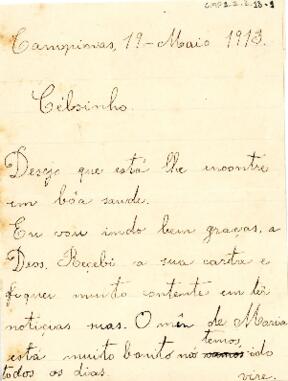 CMP2.2.2.18-1
Campinas, 19-Maio 1913.
Célsinho.
Desejo que está lhe encontre
em bôa saude.
Eu vou indo bem graças, a
Deos. Recebi a sua carta e
fiquei muito contente em ter
noticias suas. O mên de Maria
temos,
está muito bonito nós vamos ido
todos os dias.
vire.